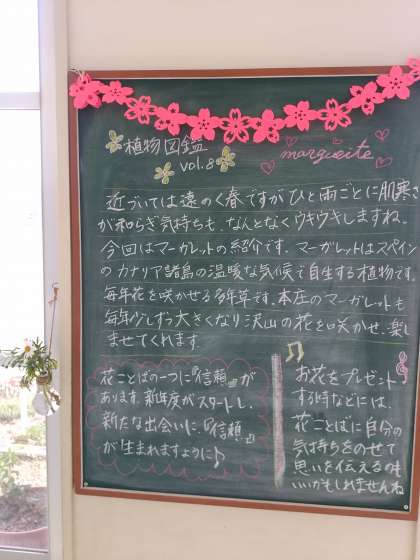 植物図鑑
vol.8
marguerite
近づいては遠のく春ですがひと雨ごとに肌寒さ
が和らぎ気持ちも、なんとなくウキウキしますね。
今回はマーガレットの紹介です。マーガレットはスペイン
のカナリア諸島の温暖な気候で自生する植物です。
毎年花を咲かせる多年草です。本庄のマーガレットも
毎年少しずつ大きくなり沢山の花を咲かせ、楽し
ませてくれます。
花ことばの一つに『信頼』が
あります。新年度がスタートし、
新たな出会いに、『信頼』
が生まれますように♪
お花をプレゼント
する時などには、
花ことばに自分の
気持ちをのせて
思いを伝えるのも
いいかもしれませんね